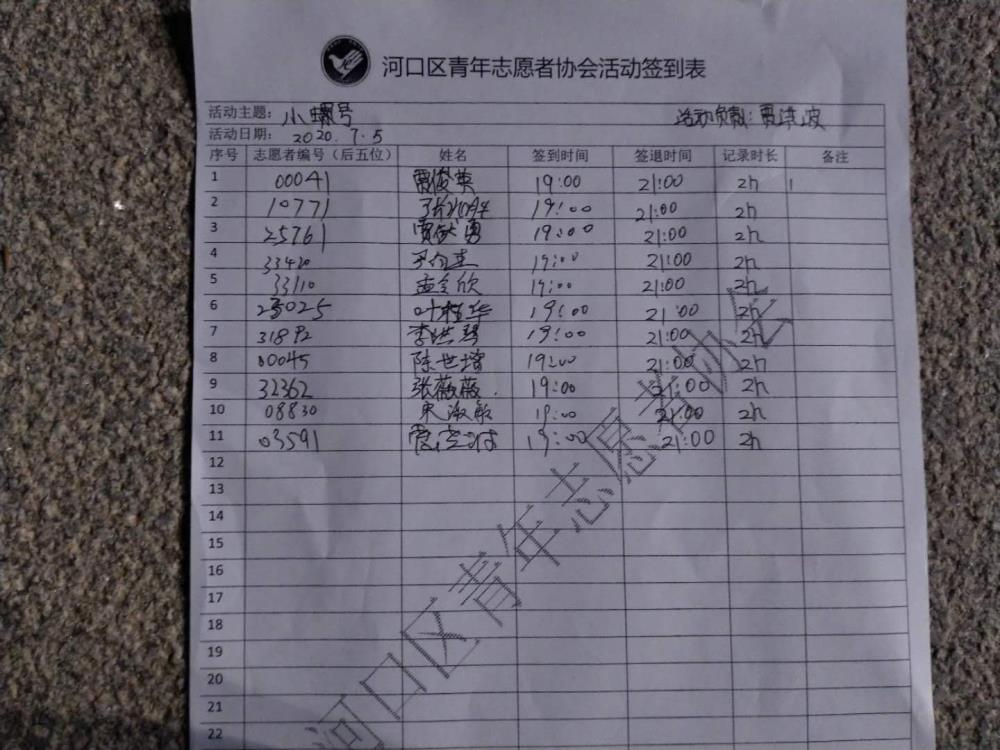 河口区青年志愿者协会活动签到表
活动主题: 小螺号 活动负责: 贾洪波
活动日期: 2020.7.5
序号 志愿者编号（后五位） 姓名 签到时间 签退时间 记录时长 备注
1 00041 贾俊英 19:00 21:00 2h
2 10771 19:00 21:00 2h
3 25761 贾 勇 19:00 21:00 2h
4 33420 19:00 21:00 2h
5 33110 孟 欣 19:00 21:00 2h
6 25025 叶 华 19:00 21:00 2h
7 31892 李洪琴 19:00 21:00 2h
8 00045 陈世增 19:00 21:00 2h
9 32362 张薇薇 19:00 21:00 2h
10 08830 宋淑敏 19:00 21:00 2h
11 03591 19:00 21:00 2h
12
13
14
15
16
17
18
19
20
21
22
河口区青年志愿者协会